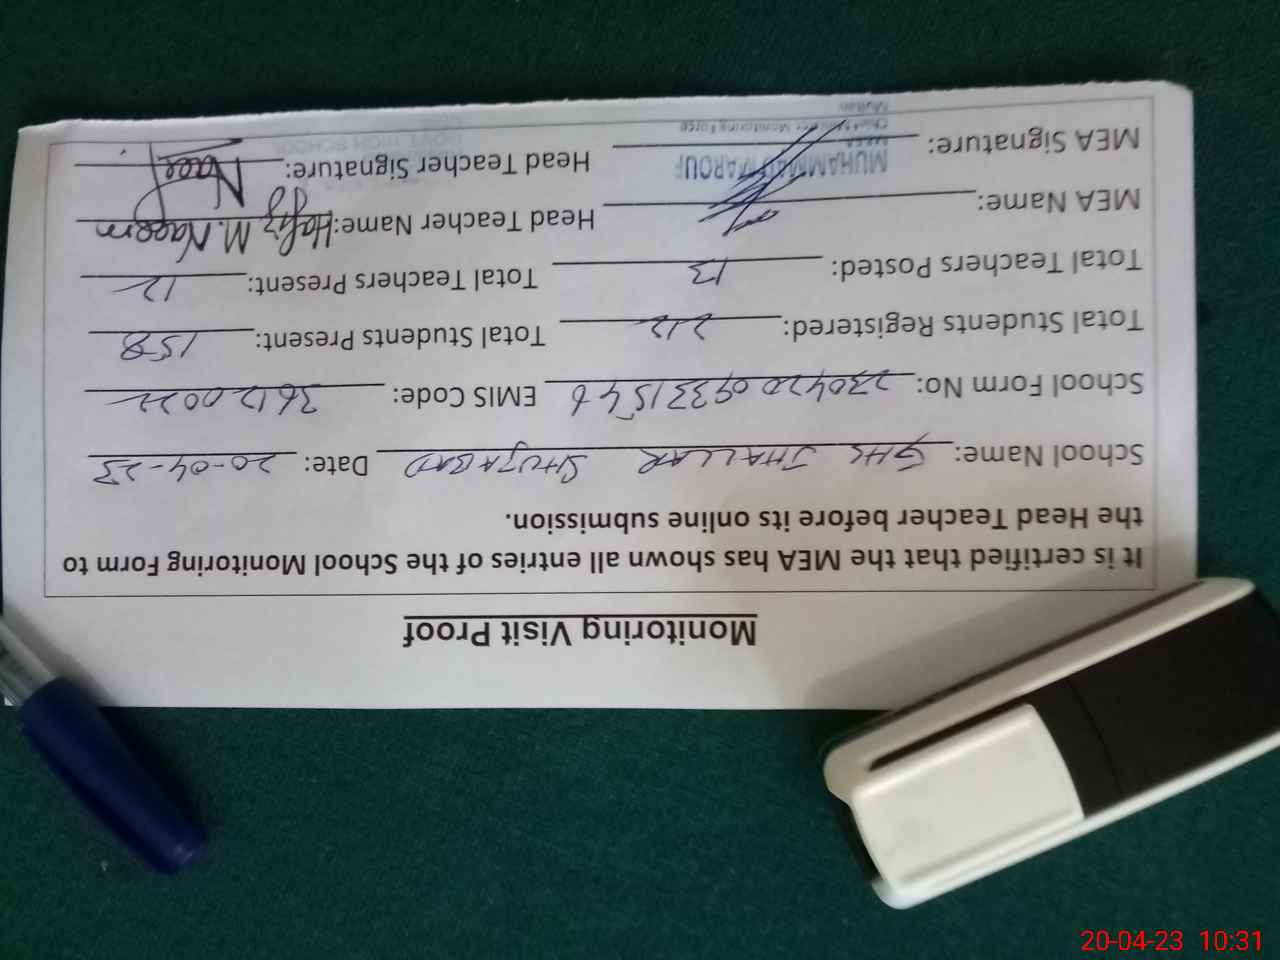 Monitoring Visit Proof
It is certified that the MEA has shown all entries of the School Monitoring Form to
the Head Teacher before its online submission.
School Name: GHS JHALLAR SHUJABAD Date: 20-04-23
School Form No: 23042009331546 EMIS Code: 36120022
Total Students Registered: 212 Total Students Present: 158
Total Teachers Posted: 13 Total Teachers Present: 12
MEA Name: Head Teacher Name: Hafiz M. Naeem
MUHAMMAD MAROUF
MEA Signature: Head Teacher Signature: Naeem
Chief Minister Monitoring Force
Multan
GOVT. HIGH SCHOOL
20-04-23 10:31